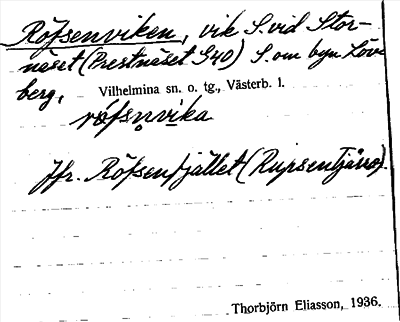 Röfsenviken, vik S. vid Stor-
näset (Prestnäset G40) S. om byn Löv-
berg.
Vilhelmina sn. o. tg., Västerb. l.
röfsn̥vika
Jfr. Röfsenfjället (Rupsentjärro).
Thorbjörn Eliasson, 1936.